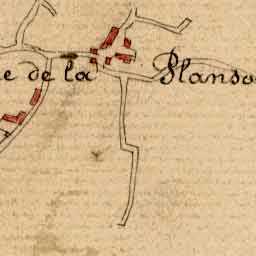 e de la Planso